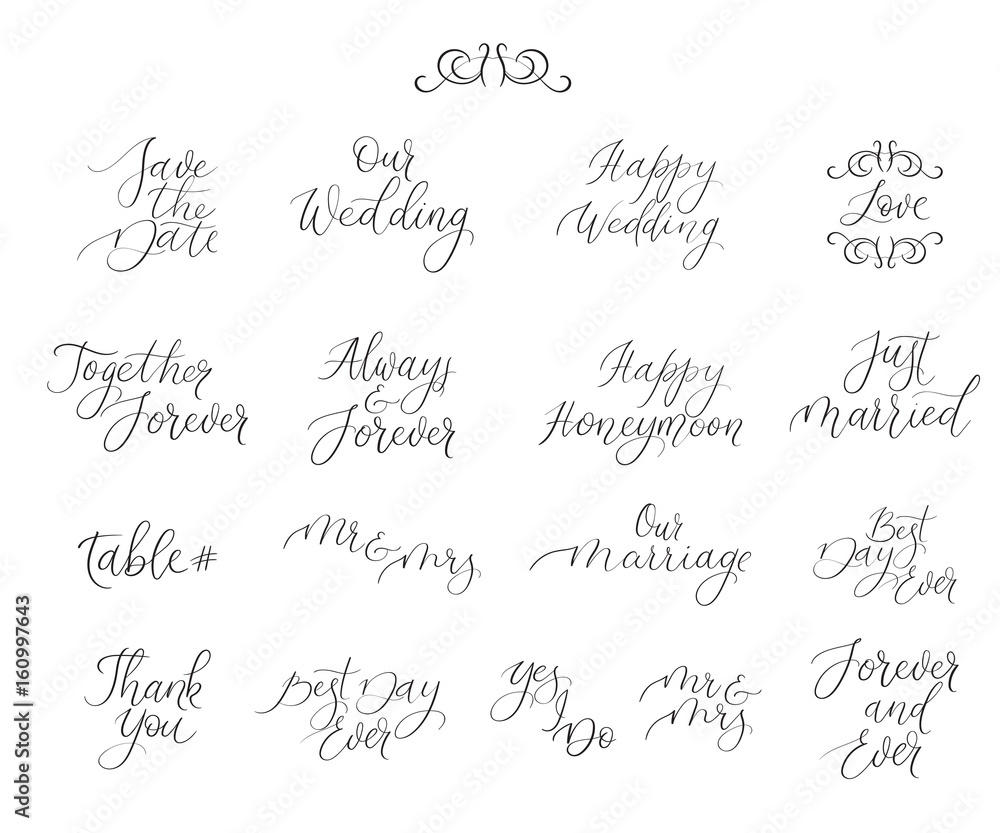 Save
the
Date
Our
Wedding
Happy
Wedding
Love
Together
Forever
Always
&
Forever
Happy
Honeymoon
Just
Married
Table #
Mr & Mrs
Our
Marriage
Best
Day
Ever
Thank
you
Best Day
Ever
Yes
I
Do
Mr &
Mrs
Forever
and
Ever
Adobe Stock | #160997643
Adobe Stock